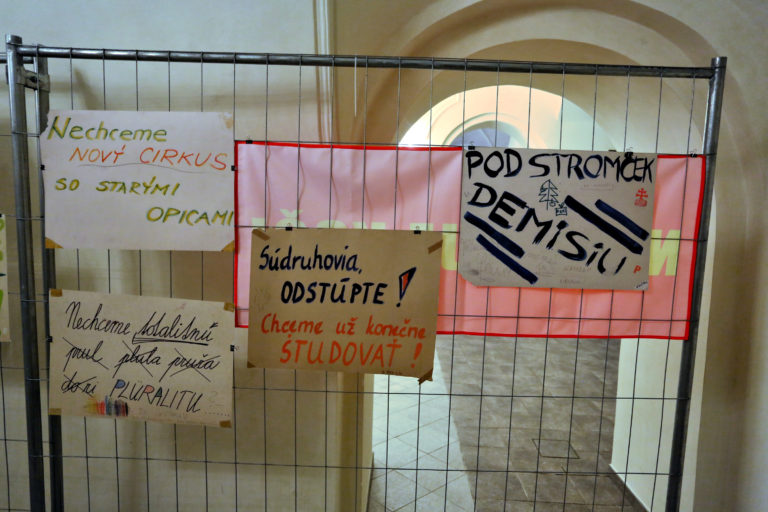 Nechceme
NOVÝ CIRKUS
SO STARÝMI
OPICAMI
Nechceme totalitnú
plula pruža
PLURALITU
Súdruhovia,
ODSTÚPTE!
Chceme už konečne
ŠTUDOVAŤ!
POD STROMČEK
DEMISIU